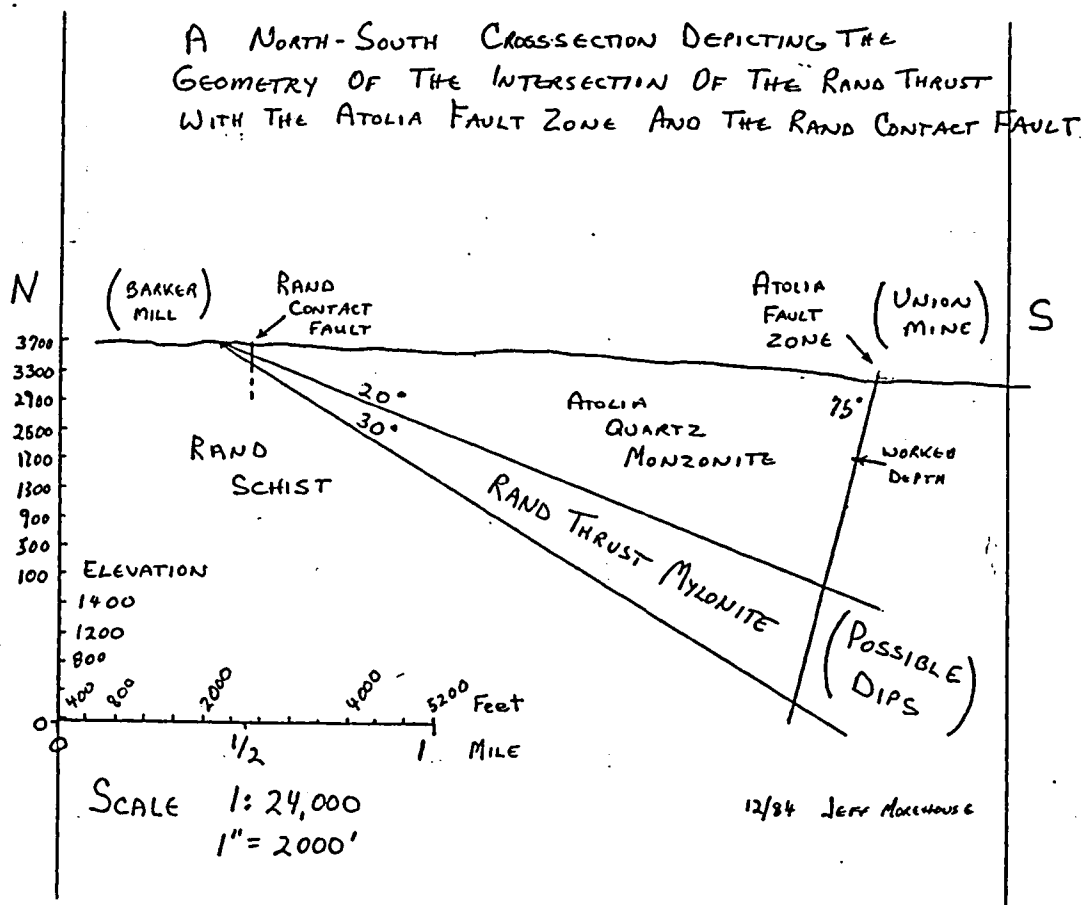 A NORTH-SOUTH CROSS-SECTION DEPICTING THE
GEOMETRY OF THE INTERSECTION OF THE RAND THRUST
WITH THE ATOLIA FAULT ZONE AND THE RAND CONTACT FAULT.
N
(BARKER
MILL)
RAND
CONTACT
FAULT
ATOLIA
FAULT
ZONE
(UNION
MINE)
S
3700
3300
2900
2500
1700
1300
900
500
100
ELEVATION
1400
1200
800
0
20°
30°
75°
ATOLIA
QUARTZ
MONZONITE
WORKED
DEPTH
RAND
SCHIST
RAND THRUST MYLONITE
(POSSIBLE
DIPS)
400 800 2000 4000 5200 Feet
0 1/2 1 MILE
SCALE 1: 24,000
1" = 2000'
12/84 JEFF MOREHOUSE